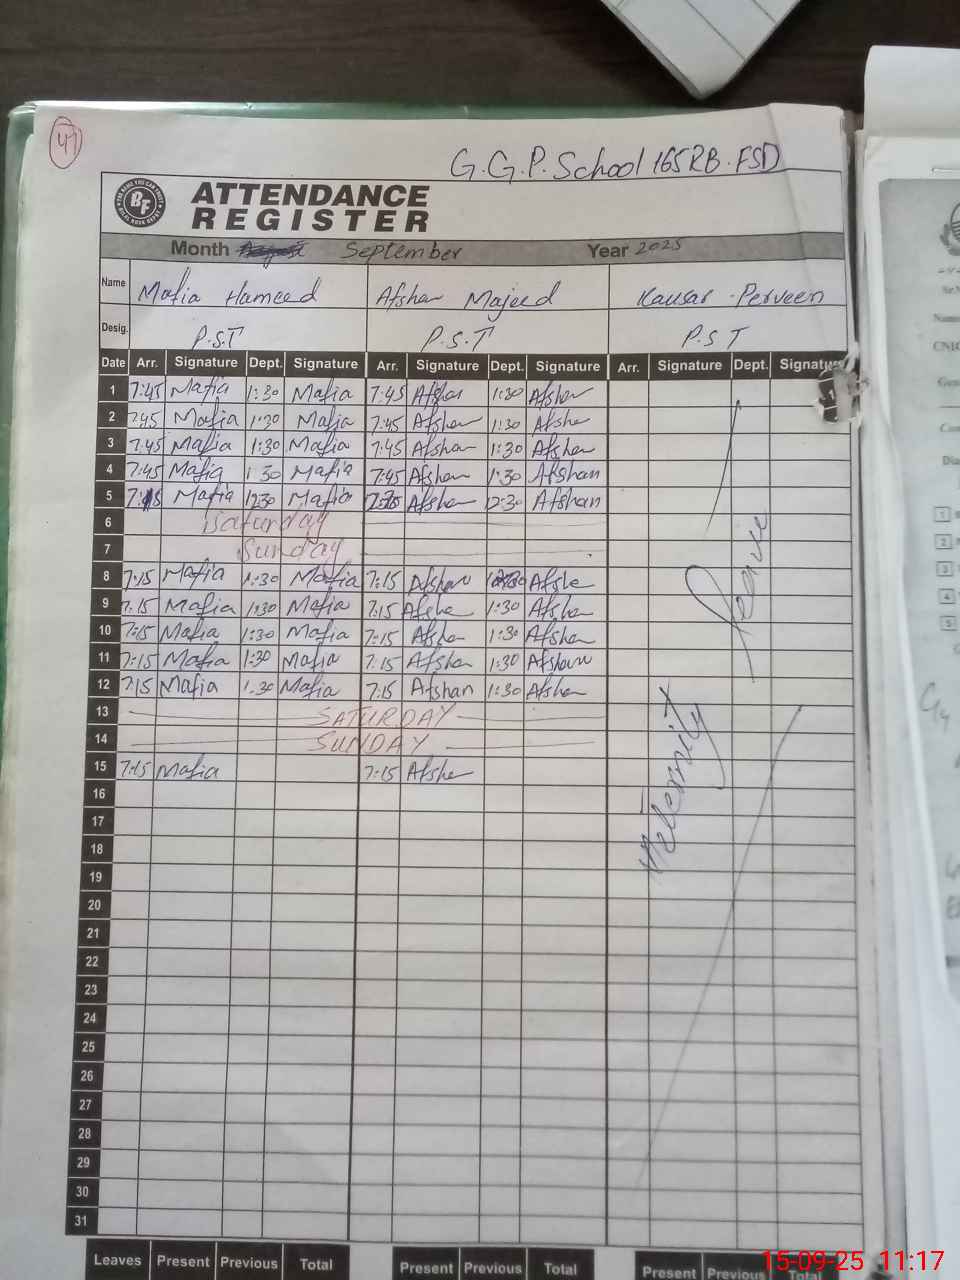 47
G.G.P. School 165RB. FSD
THE NAME YOU CAN TRUST
BF
ATTENDANCE
REGISTER
Month September Year 2025
Name Mafia Hameed Afshan Majeed Kausar Perveen
Desig. P.S.T P.S.T P.S T
Date Arr. Signature Dept. Signature Arr. Signature Dept. Signature Arr. Signature Dept. Signature
1 7:45 Mafia 1:30 Mafia 7:45 Afshan 1:30 Afshan
2 7:45 Mafia 1:30 Mafia 7:45 Afshan 1:30 Afshe
3 7:45 Mafia 1:30 Mafia 7:45 Afshan 1:30 Afshan
4 7:45 Mafia 1 30 Mafia 7:45 Afshan 1:30 Afshan
5 Mafia 12:30 Mafia Afshan 12:30 Afshan
6 Saturday
7 Sunday
8 7:15 Mafia 1:30 Mafia 7:15 Afshan Afshe
9 7:15 Mafia 1:30 Mafia 7:15 Afshe 1:30 Afshan
10 7:15 Mafia 1:30 Mafia 7:15 Afshan 1:30 Afshan
11 7:15 Mafia 1:30 Mafia 7:15 Afshan 1:30 Afshan
12 7:15 Mafia 1:30 Mafia 7:15 Afshan 1:30 Afshan
13 SATURDAY
14 SUNDAY
15 7:15 Mafia 7:15 Afshe
16
17
18
19
20
21
22
23
24
25
26
27
28
29
30
31
Meternity Leave
Leaves Present Previous Total Present Previous Total Present Previous Total
15-09-25 11:17